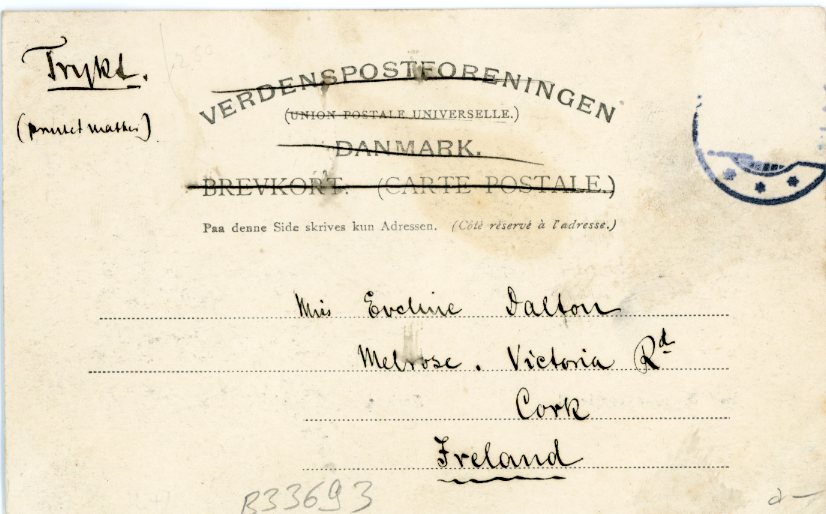 Trykt.
(printet matter)
VERDENSPOSTFORENINGEN
(UNION POSTALE UNIVERSELLE.)
DANMARK.
BREVKORT. (CARTE POSTALE.)
Paa denne Side skrives kun Adressen. (Côté réservé à l'adresse.)
Miss Eveline Dalton
Melrose. Victoria Rd
Cork
Ireland
B33693